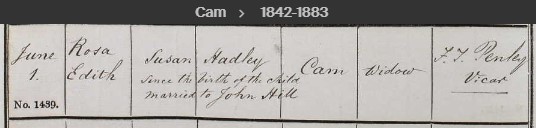 Cam > 1842-1883
June
1.
No. 1489.
Rosa
Edith
Susan Hadley
since the birth of the child
married to John Hill
Cam
Widow
F. T. Penley
Vicar